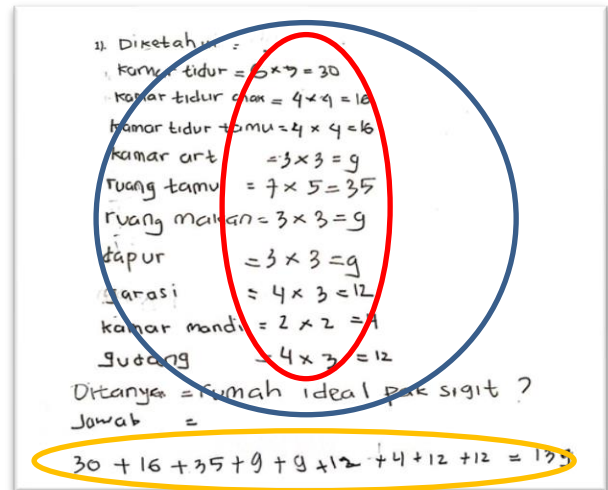 1). Diketahui = .
kamar tidur = 6 × 5 = 30
kamar tidur anak = 4 × 4 = 16
kamar tidur tamu = 4 × 4 = 16
kamar art = 3 × 3 = 9
ruang tamu = 7 × 5 = 35
ruang makan = 3 × 3 = 9
dapur = 3 × 3 = 9
garasi = 4 × 3 = 12
kamar mandi = 2 × 2 = 4
gudang = 4 × 3 = 12
Ditanya = rumah ideal pak sigit ?
Jawab =
30 + 16 + 35 + 9 + 9 + 12 + 4 + 12 + 12 = 139